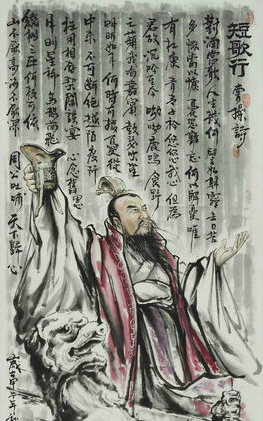 短歌行
曹操詩
對酒當歌人生幾何譬如朝露去日苦
多慨當以慷憂思難忘何以解憂唯
有杜康青青子衿悠悠我心但為
君故沉吟至今呦呦鹿鳴食野
之苹我有嘉賓鼓瑟吹笙
明明如月何時可掇憂從
中來不可斷絕越陌度阡
枉用相存契闊談讌
心念舊恩
月明星稀烏鵲南飛
繞樹三匝何枝可依
山不厭高海不厭深
周公吐哺天下歸心